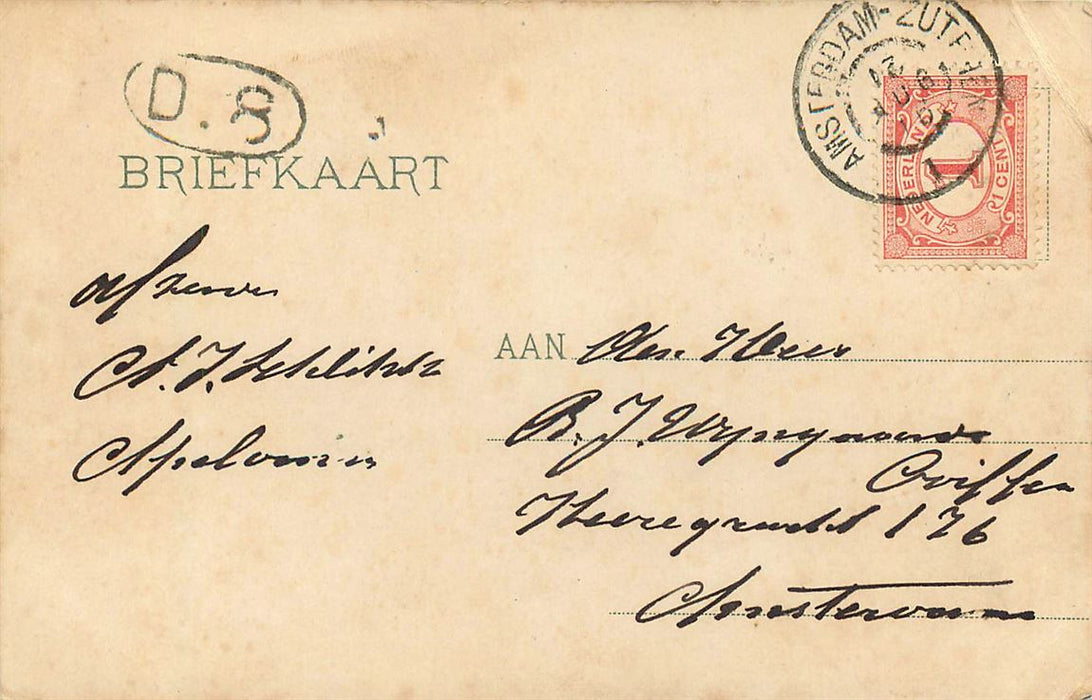 D. 8
BRIEFKAART
AMSTERDAM-ZUTPHEN
I
NEDERLAND
1
1 CENT
afzender
A. J.
Apeldoorn
AAN Den Heer
B. J. Wijngaards
Heeregracht 176
Amsterdam